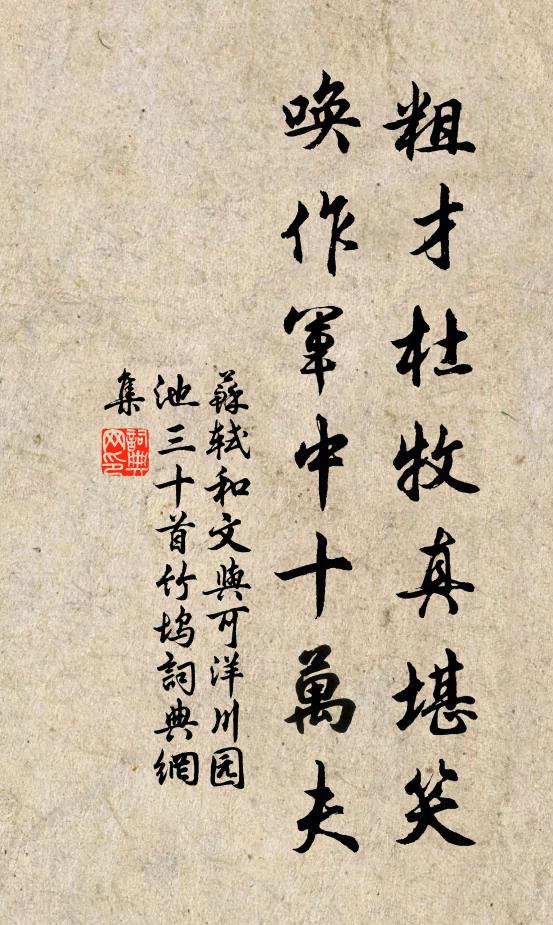 粗才杜牧真堪笑
喚作軍中十萬夫
蘇軾和文與可洋川园
池三十首竹塢詞典網
集
詞典
网印